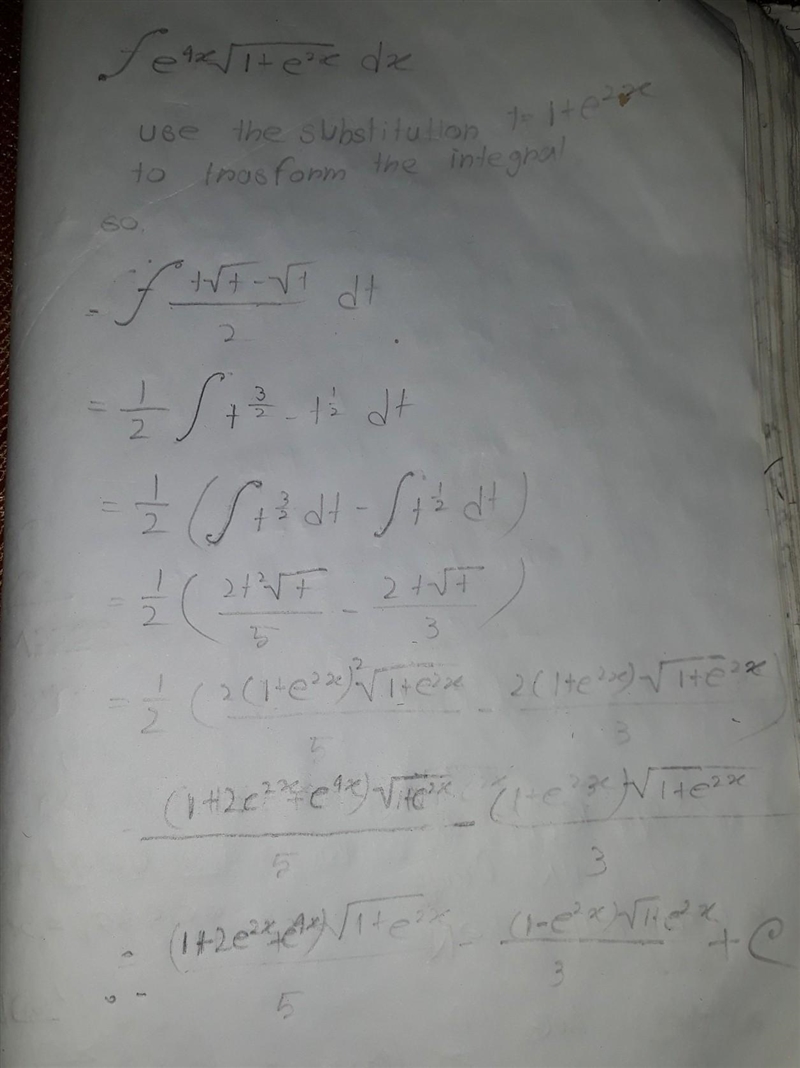 ∫ e^4x √1+e^2x dx
use the substitution t= 1+e^2x
to trasform the integral
so.
= ∫ t√t - √t / 2 dt
= 1/2 ∫ t^3/2 - t^1/2 dt
= 1/2 ( ∫ t^3/2 dt - ∫ t^1/2 dt )
= 1/2 ( 2t^2√t / 5 - 2t√t / 3 )
= 1/2 ( 2(1+e^2x)^2 √1+e^2x / 5 - 2(1+e^2x) √1+e^2x / 3 )
(1+2e^2x+e^4x) √1+e^2x / 5 - (1+e^2x) √1+e^2x / 3
∴ - (1+2e^2x+e^4x) √1+e^2x / 5 - (1-e^2x) √1+e^2x / 3 + C